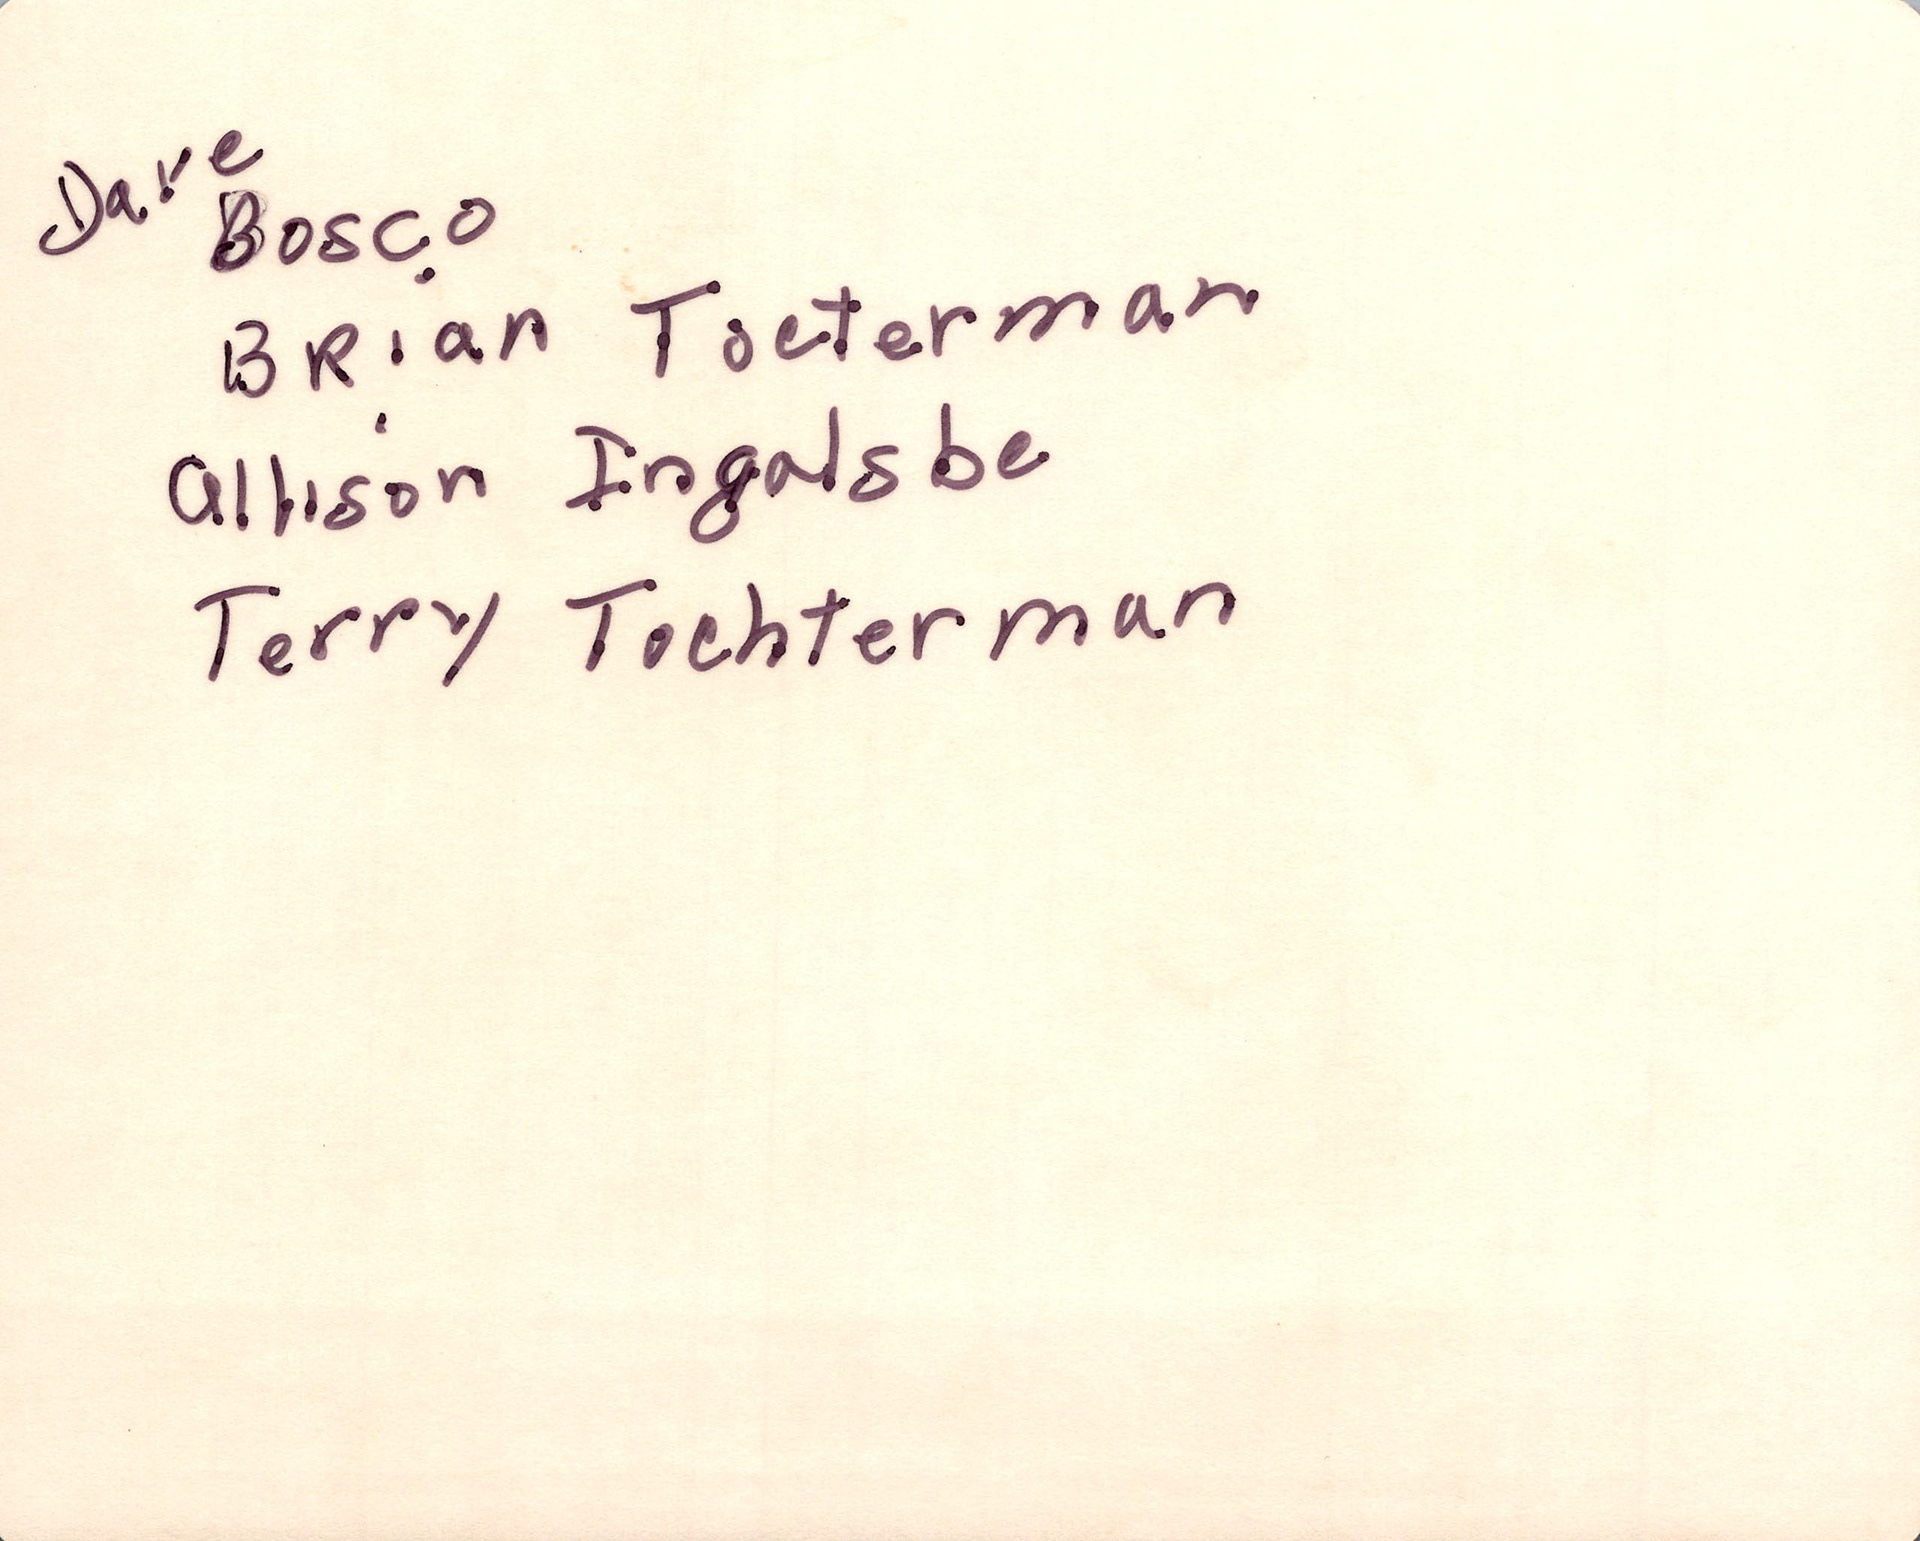 Dave
Bosco
Brian Tocterman
Allison Ingalsbe
Terry Tochterman